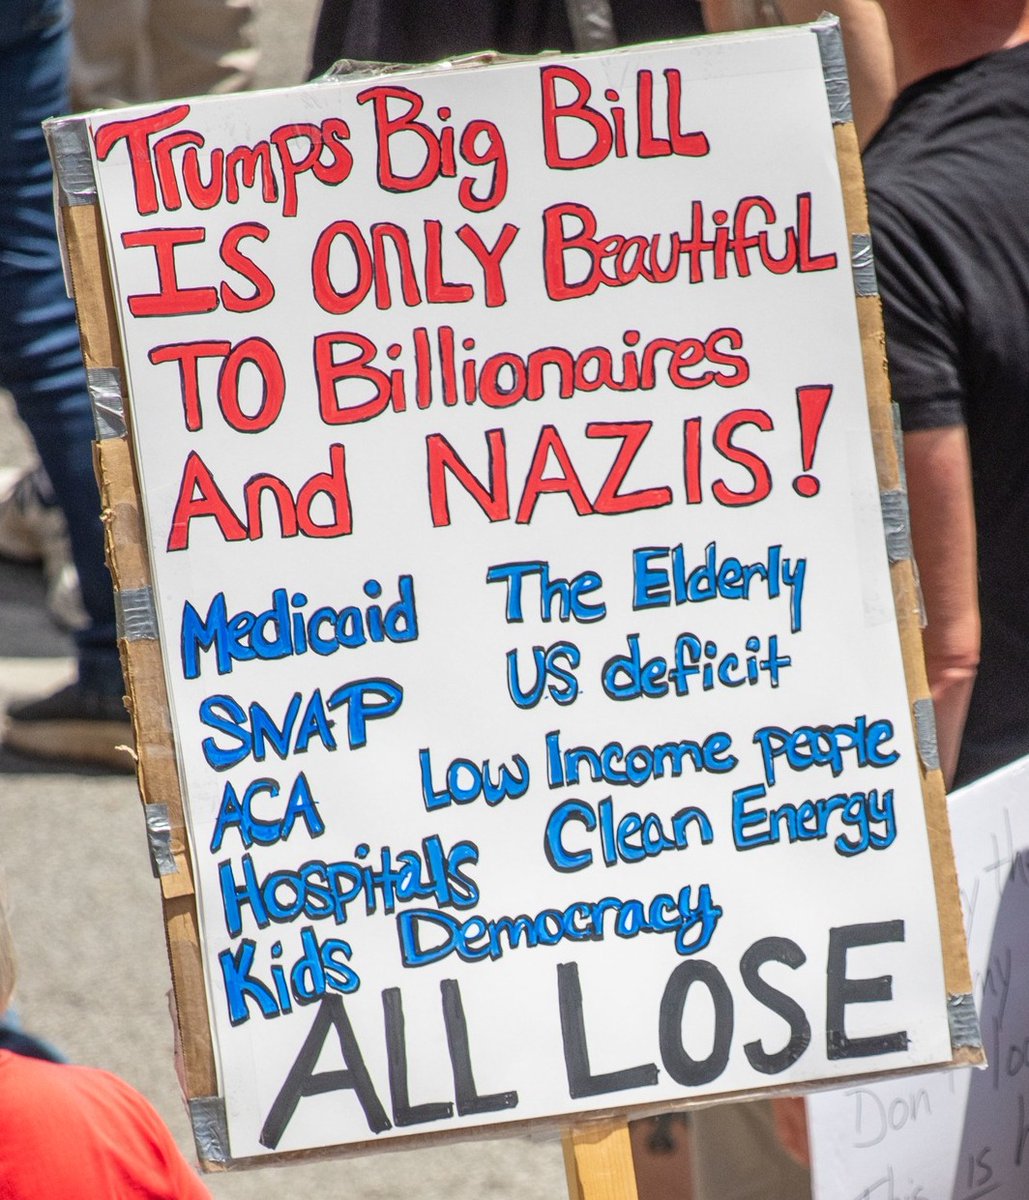 Trumps Big Bill
IS ONLY Beautiful
TO Billionaires
And NAZIS!
Medicaid The Elderly
SNAP US deficit
ACA Low Income people
Hospitals Clean Energy
Kids Democracy
ALL LOSE
my
Don't
is